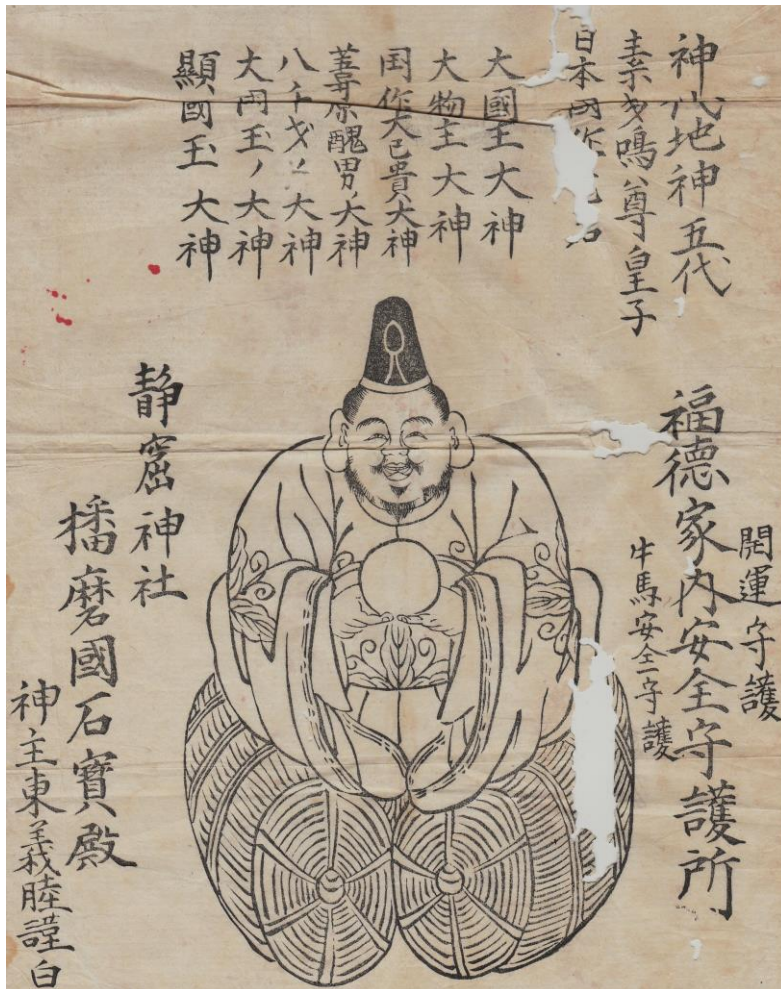 神代地神五代
素戔嗚尊皇子
日本國作
大國主大神
大物主大神
国作大己貴大神
葦原醜男ノ大神
八千戈ノ大神
大国玉ノ大神
顯國玉大神
開運守護
福德家内安全守護所
牛馬安全守護
靜窟神社
播磨國石寶殿
神主東義睦謹白